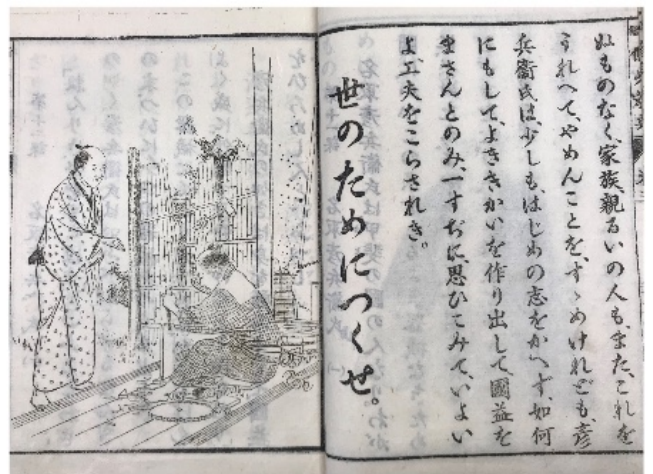 ぬものなく、家族、親るいの人も、また、これを
うれへて、やめんことを、すゝめけれども、彦
兵衞氏は、少しも、はじめの志をかへず、如何
にもして、よききかいを作り出して、國益を
まさんとのみ、一すぢに、思ひこみて、いよい
よ工夫をこらされき。
世のためにつくせ。